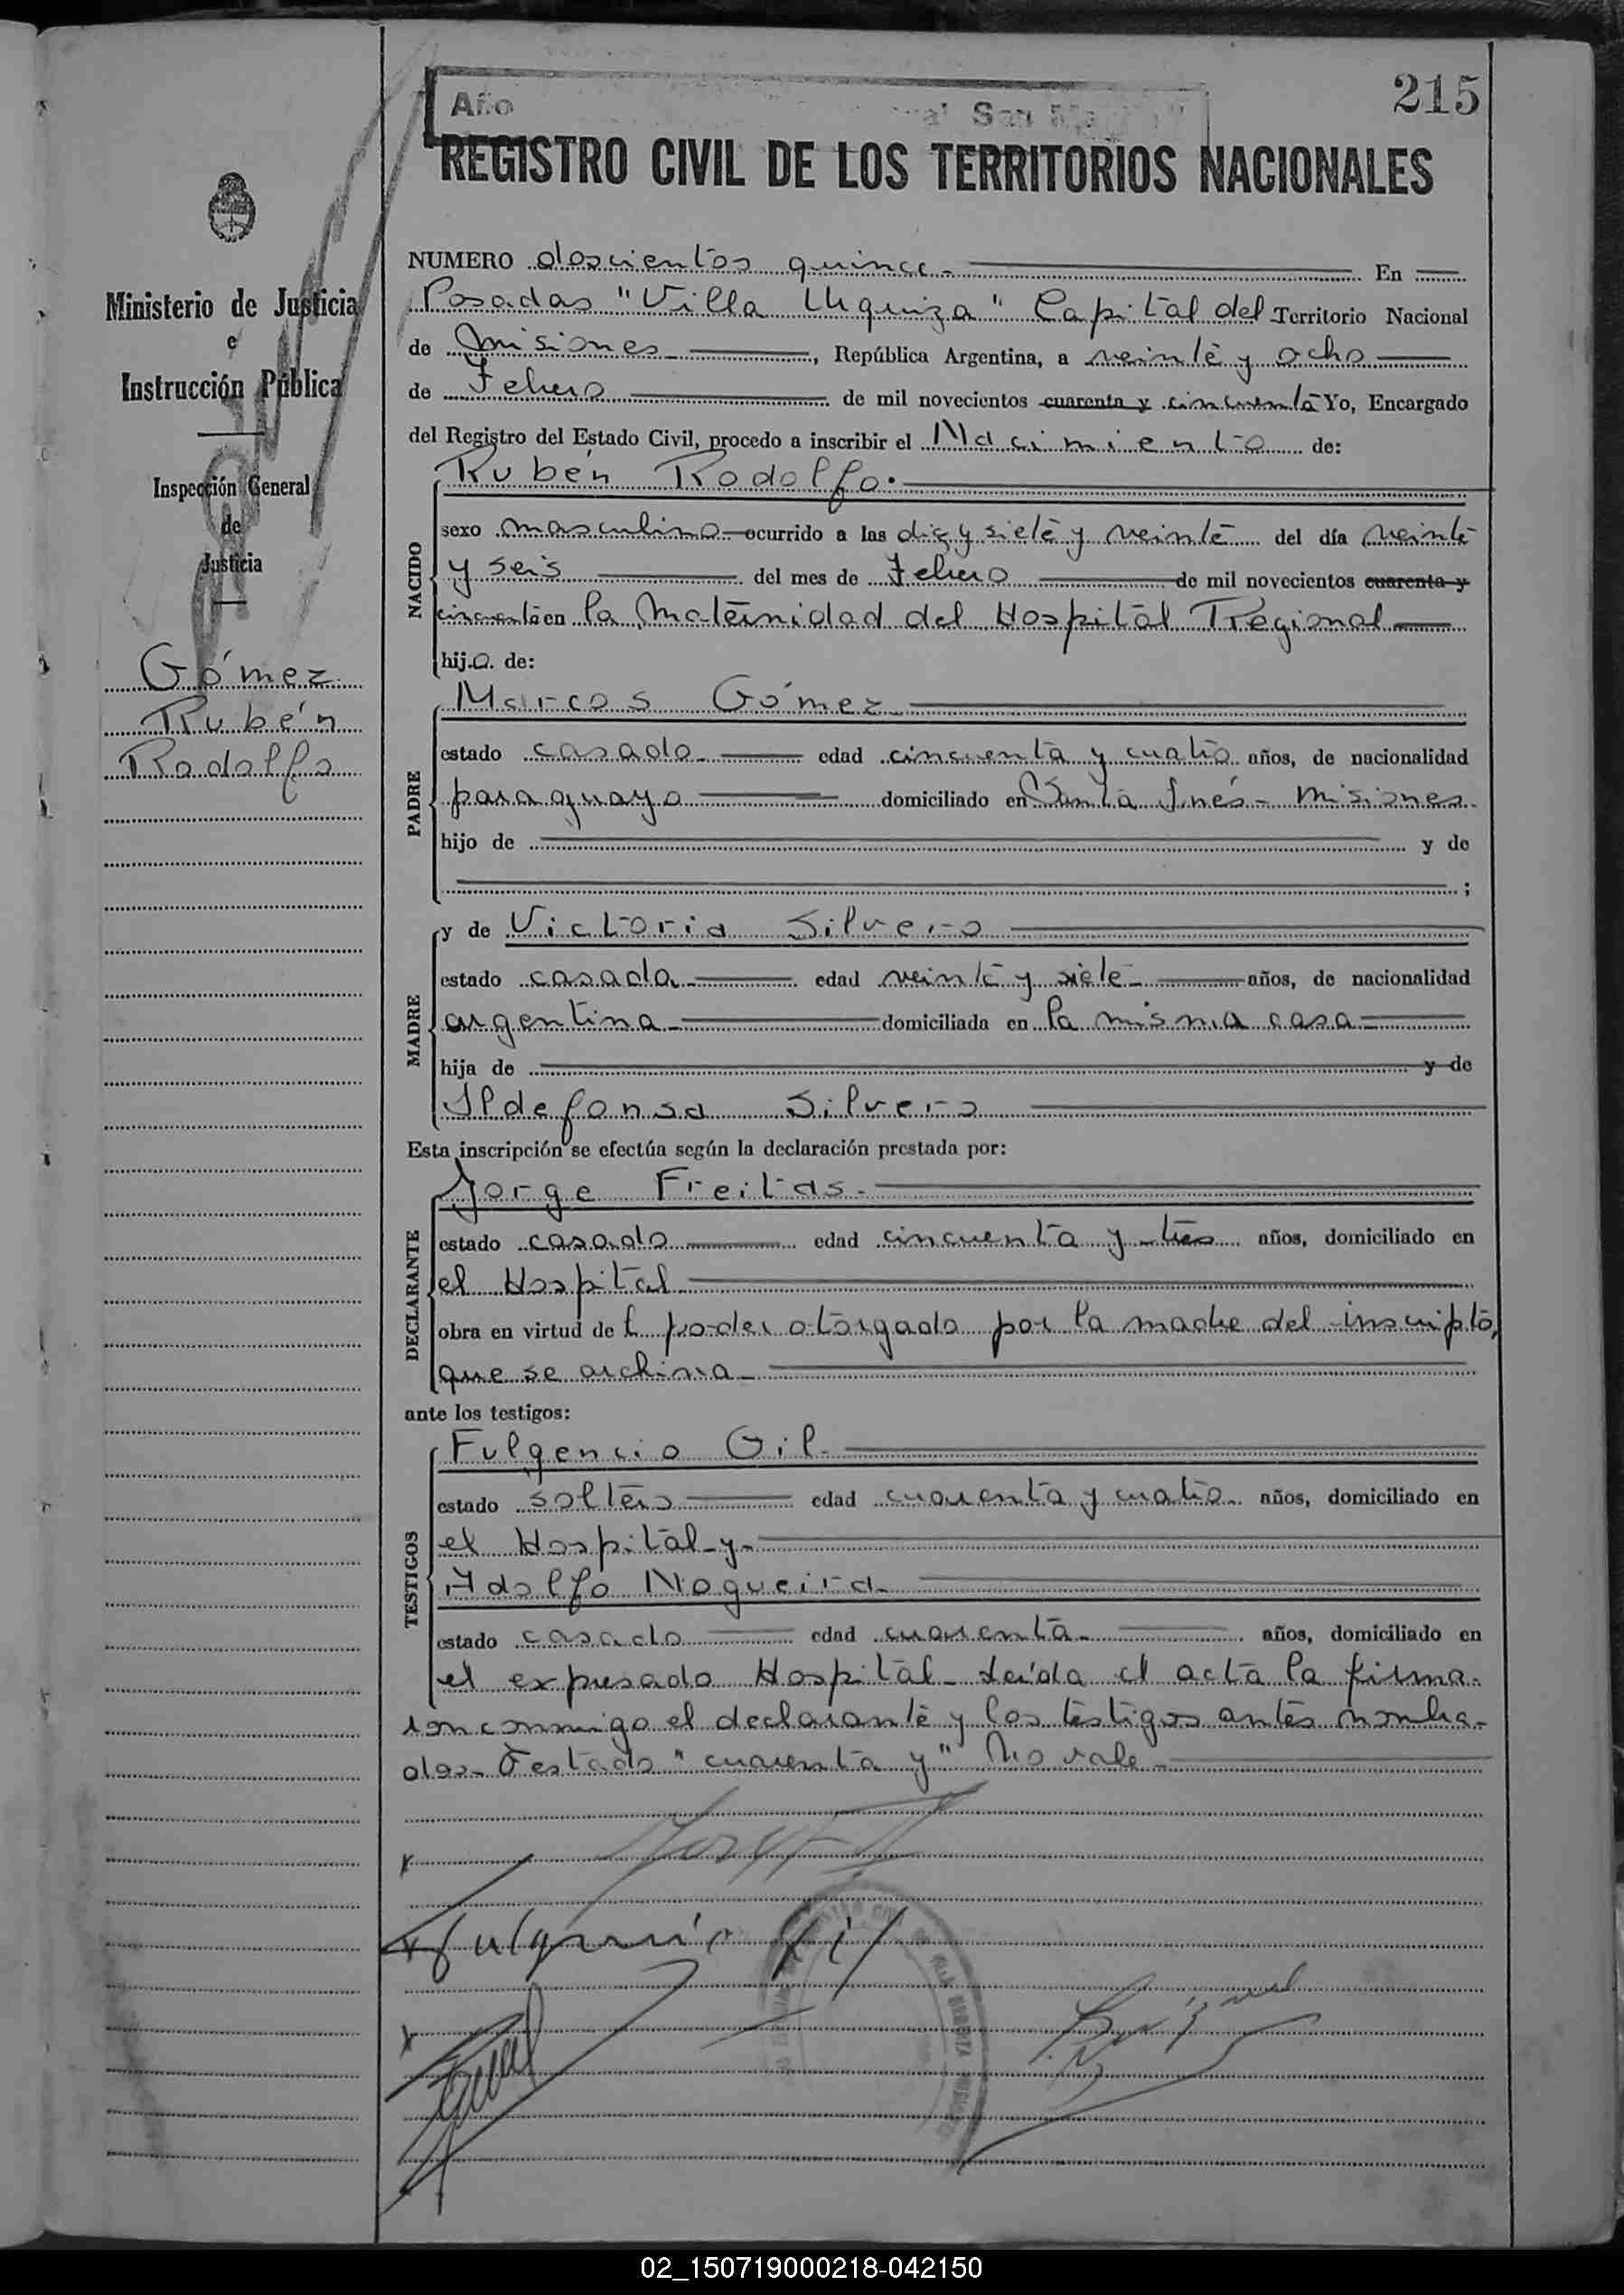 215
Año
San
REGISTRO CIVIL DE LOS TERRITORIOS NACIONALES
Ministerio de Justicia
e
Instrucción Pública
Inspección General
de
Justicia
Gómez
Rubén
Rodolfo
NUMERO doscientos quince.- En
Posadas "Villa Urquiza" Capital del Territorio Nacional
de Misiones, República Argentina, a veinte y ocho
de Febrero de mil novecientos cuarenta y cincuenta Yo, Encargado
del Registro del Estado Civil, procedo a inscribir el Nacimiento de:
NACIDO
Rubén Rodolfo.
sexo masculino ocurrido a las diez y siete y veinte del día veinte
y seis del mes de Febrero de mil novecientos cuarenta y
cincuenta en la Maternidad del Hospital Regional
hijo de:
PADRE
Marcos Gómez
estado casado edad cincuenta y cuatro años, de nacionalidad
paraguayo domiciliado en Santa Inés - Misiones
hijo de y de
;
MADRE
y de Victoria Silvero
estado casada edad veinte y siete años, de nacionalidad
argentina domiciliada en la misma casa
hija de y de
Ildefonsa Silvero
Esta inscripción se efectúa según la declaración prestada por:
DECLARANTE
Jorge Freitas.
estado casado edad cincuenta y tres años, domiciliado en
el Hospital
obra en virtud del poder otorgado por la madre del inscripto,
que se archiva
ante los testigos:
TESTIGOS
Fulgencio Gil
estado soltero edad cuarenta y cuatro años, domiciliado en
el Hospital y
Adolfo Nogueira
estado casado edad cuarenta años, domiciliado en
el expresado Hospital - Leída el acta la firma-
ron conmigo el declarante y los testigos antes nombra-
dos - Testado "cuarenta y" No vale
Fulgencio Gil
02_150719000218-042150